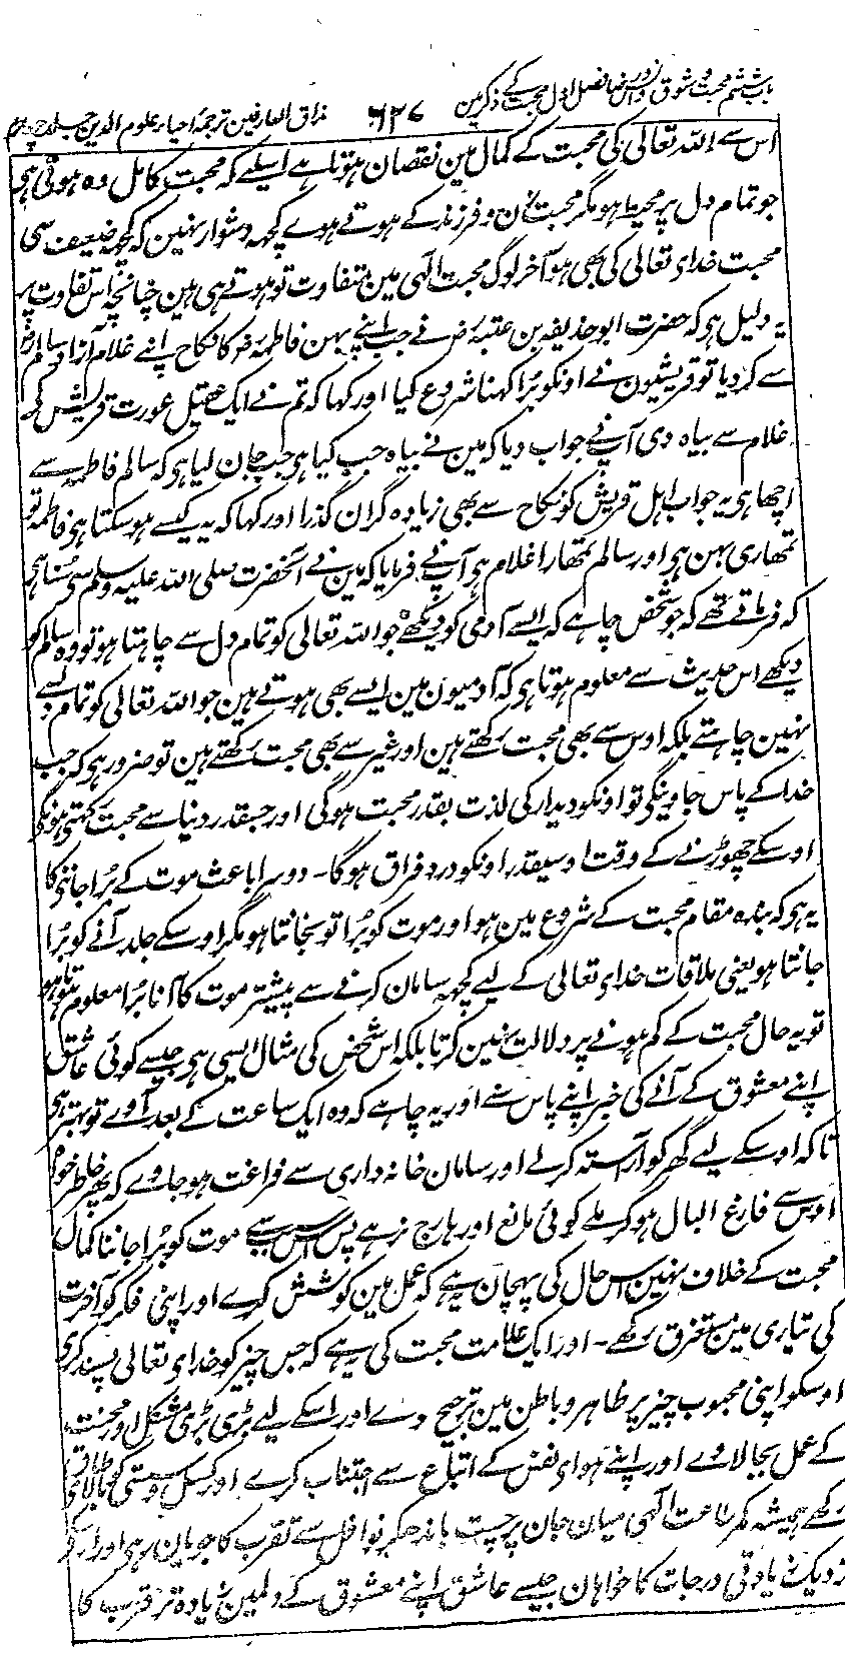 باب ششم محبت و شوق و انس و رضا فصل اول محبت کے ذکر مین ۶۲۷ مذاق العارفین ترجمۂ احیاء علوم الدین جلد چہارم
اس سے اللہ تعالی کی محبت کے کمال مین نقصان ہوتا ہے اسلیے کہ محبت کامل وہ ہوتی ہی
جو تمام دل پر محیط ہو مگر محبت زن و فرزند کے ہوتے ہوے کچھہ دشوار نہین کہ کچھہ ضعیف سی
محبت خداے تعالی کی بھی ہو آخر لوگ محبت الٓہی مین متفاوت تو ہوتے ہی ہین چنانچہ اس تفاوت پر
یہ دلیل ہی کہ حضرت ابو حذیفہ بن عتبہ رض نے جب اپنے بہن فاطمہ رض کا نکاح اپنے غلام آزاد سالم رض
سے کر دیا تو قریشیون نے اونکو بُرا کہنا شروع کیا اور کہا کہ تم نے ایک عقیل عورت قریش کی
غلام سے بیاہ دی آپ نے جواب دیا کہ مین نے بیاہ جب کیا ہی جب جان لیا ہی کہ سالم فاطمہ سے
اچھا ہی یہ جواب اہل قریش کو نکاح سے بھی زیادہ گران گذرا اور کہا کہ یہ کیسے ہو سکتا ہی فاطمہ تو
تمھاری بہن ہی اور سالم تمھارا غلام ہی آپ نے فرمایا کہ مین نے آنحضرت صلی اللہ علیہ وسلم سے سُنا ہی
کہ فرماتے تھے کہ جو شخص چاہے کہ ایسے آدمی کو دیکھے جو اللہ تعالی کو تمام دل سے چاہتا ہو تو وہ سالم کو
دیکھے اس حدیث سے معلوم ہوتا ہی کہ آدمیون مین ایسے بھی ہوتے ہین جو اللہ تعالی کو تمام دل سے
نہین چاہتے بلکہ اوس سے بھی محبت رکھتے ہین اور غیر سے بھی محبت رکھتے ہین تو ضرور ہی کہ جب
خدا کے پاس جاوینگے تو اونکو دیدار کی لذت بقدر محبت ہوگی اور جسقدر دنیا سے محبت رکھتے ہونگے
اوسکے چھوڑنے کے وقت اوسیقدر اونکو درد فراق ہوگا۔ دوسرا باعث موت کے بُرا جاننے کا
یہ ہی کہ بندہ مقام محبت کے شروع مین ہو اور موت کو بُرا تو نجانتا ہو مگر اوسکے جلد آنے کو بُرا
جانتا ہو یعنی ملاقات خداے تعالی کے لیے کچھہ سامان کرنے سے پیشتر موت کا آنا بُرا معلوم ہوتا ہو
تو یہ حال محبت کے کم ہونے پر دلالت نہین کرتا بلکہ اس شخص کی مثال ایسی ہی جیسے کوئی عاشق
اپنے معشوق کے آنے کی خبر اپنے پاس سنے اور یہ چاہے کہ وہ ایک ساعت کے بعد آوے تو بہتر ہی
تاکہ اوسکے لیے گھر کو آراستہ کرلے اور سامان خانہ داری سے فراغت ہو جاوے کہ پھر خاطر خواہ
اوس سے فارغ البال ہو کر ملے کوئی مانع اور ہارج نرہے پس اس سبب سے موت کو بُرا جاننا کمال
محبت کے خلاف نہین اس حال کی پہچان یہ ہے کہ عمل مین کوشش کرے اور اپنی فکر کو آخرت
کی تیاری مین مستغرق رکھے۔ اور ایک علامت محبت کی یہ ہے کہ جس چیز کو خداے تعالی پسند کرے
اوسکو اپنی محبوب چیز پر ظاہر و باطن مین ترجیح دے اور اسکے لیے بڑی بڑی مشکل اور محنت
کے عمل بجا لاوے اور اپنے ہواے نفس کے اتباع سے اجتناب کرے اور کسل و سستی کو بالاے طاق
رکھے ہمیشہ کمر طاعت الٓہی میان جان پر چست باندھکر نوافل سے تقرب کا جویان رہی اور اوسکے
نزدیک زیادتی درجات کا خواہان جیسے عاشق اپنے معشوق کے دلمین زیادہ تر قرب کا